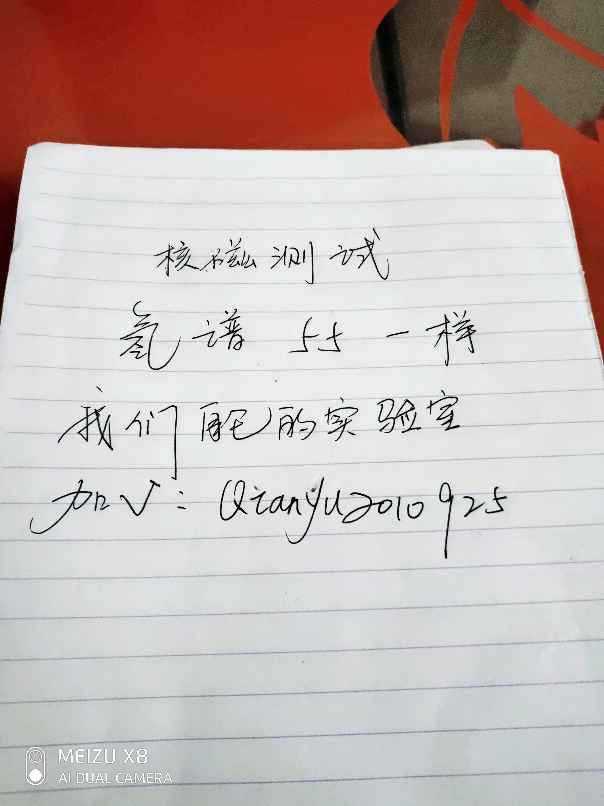 核磁测试
氢谱 55 一样
我们自己的实验室
加V：Qianyu2010925
MEIZU X8
AI DUAL CAMERA